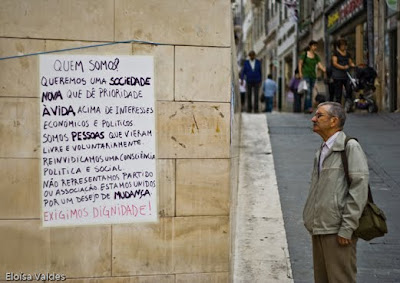 QUEM SOMOS?
QUEREMOS UMA SOCIEDADE
NOVA QUE DÊ PRIORIDADE
À VIDA ACIMA DE INTERESSES
ECONOMICOS E POLITICOS.
SOMOS PESSOAS QUE VIERAM
LIVRE E VOLUNTARIAMENTE.
REINVIDICAMOS UMA CONSCIÊNCIA
POLITICA E SOCIAL.
NÃO REPRESENTAMOS PARTIDO
OU ASSOCIAÇÃO. ESTAMOS UNIDOS
POR UM DESEJO DE MUDANÇA.
EXIGIMOS DIGNIDADE!
Eloísa Valdes